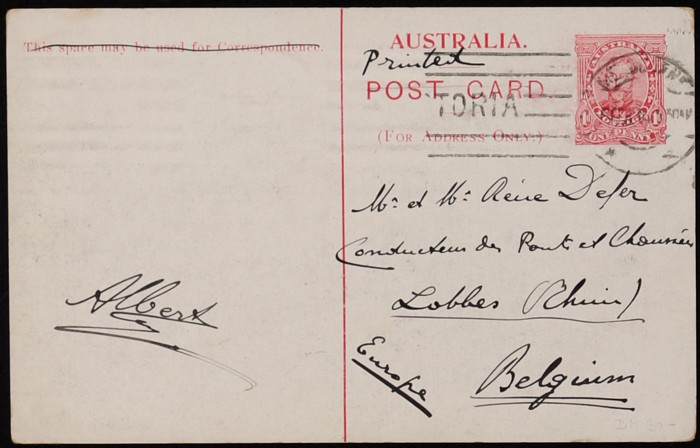 This space may be used for Correspondence.
AUSTRALIA.
Printed
POST CARD
TORIA
(FOR ADDRESS ONLY.)
AUSTRALIA
ONE PENNY
Mr et Me Réné Defer
Conducteur des Ponts et Chaussées
Lobbes
Europe
Belgium
Albert